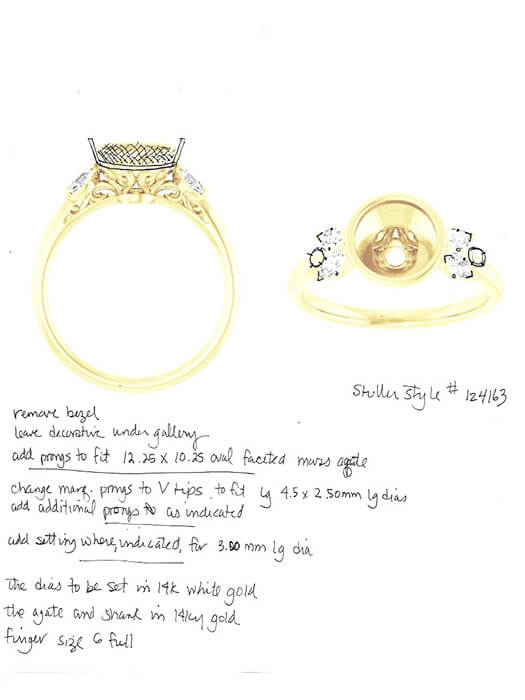 Stuller Style # 124163
remove bezel
leave decorative under gallery
add prongs to fit 12.25 x 10.25 oval faceted moss agate
change marq. prongs to V tips to fit lg 4.5 x 2.50mm lg dias
add additional prongs as indicated
add setting where indicated, for 3.00 mm lg dia
the dias to be set in 14k white gold
the agate and shank in 14ky gold
finger size 6 full